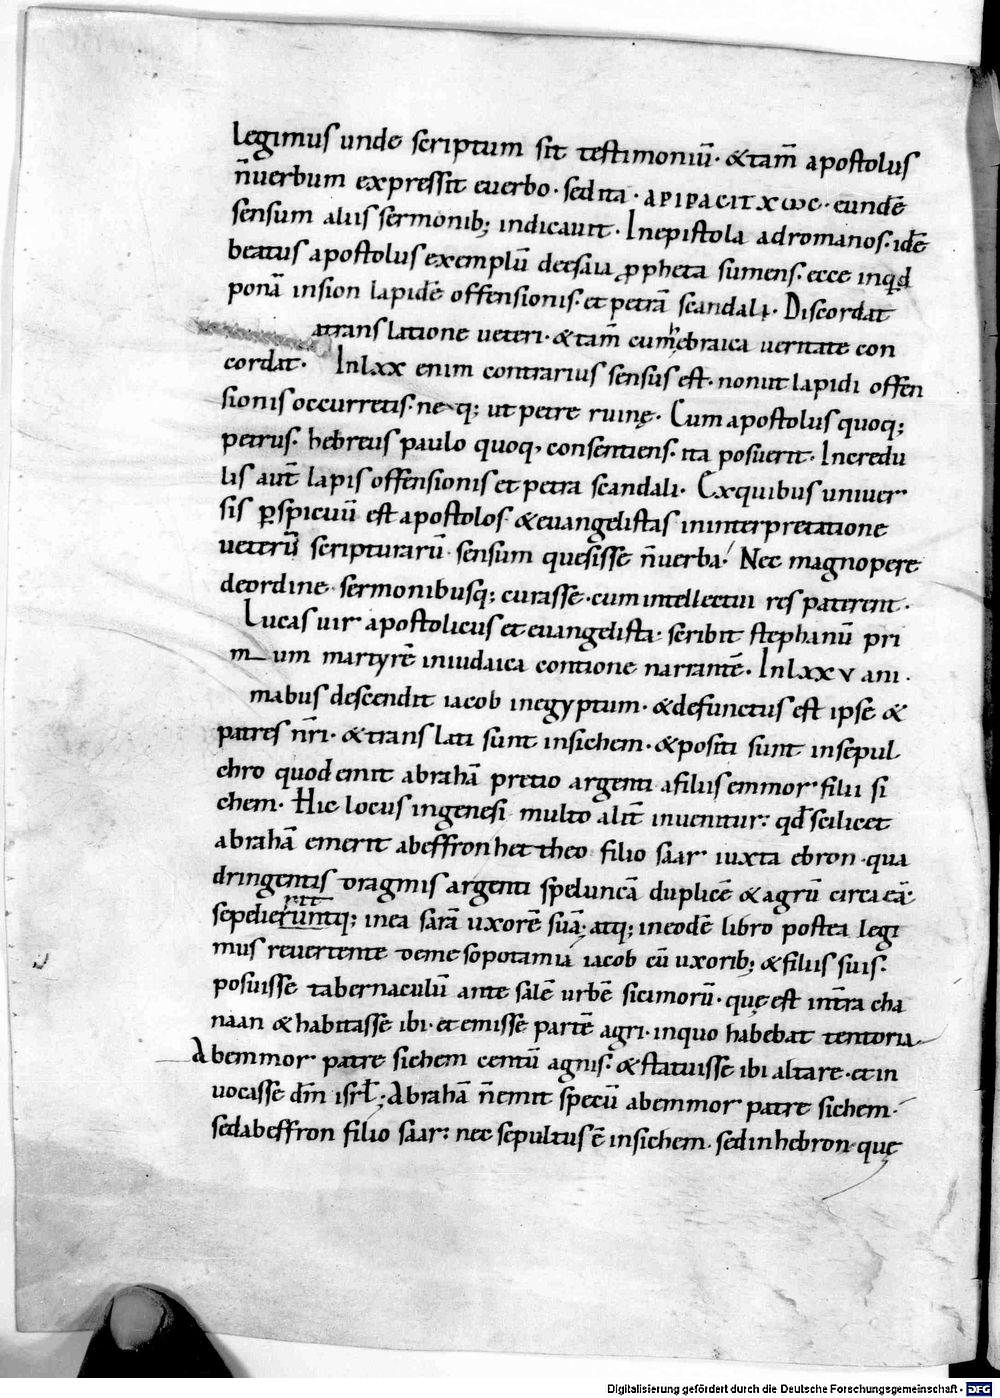 legimus unde scriptum sit testimoniū· &tam̄ apostolus
n̄uerbum expressit euerbo· sed ita· ΑΡΙΡΑCΙΤΧωC· eundē
sensum aliis sermonib; indicauit· Inepistola adromanos· idē
beatus apostolus exemplū deesaia ꝓpheta sumens· ecce inqd̄
ponā insion lapidē offensionis· et petrā scandali· Discordat
atranslatione ueteri· &tam̄ cumhebraica ueritate con
cordat· Inlxx enim contrarius sensus est· nonut lapidi offen
sionis occurretis· neq; ut petre ruinę· Cum apostolus quoq;
petrus· hebreus paulo quoq, consentiens· ita posuerit· Incredu
lis aut̄ lapis offensionis et petra scandali· Exquibus uniuer
sis ꝑspicuū est apostolos &euangelistas ininterpretatione
ueterū scripturarū sensum quesisse n̄uerba· Nec magnopere
deordine sermonibusq; curasse· cum intellectui res paterent·
Lucas uir apostolicus et euangelista· scribit stephanū pri
m um martyrē iniudaica contione narrantē· Inlxxv ani
mabus descendit iacob inegyptum· &defunctus est ipse &
patres nr̄i· &translati sunt insichem· &positi sunt insepul
chro quod emit abrahā pretio argenti afiliis emmor filii si
chem· Hic locus ingenesi multo alit̄ inuenitur· qd̄ scilicet
abrahā emerit abeffron hettheo filio saar iuxta ebron qua
dringentis dragmis argenti speluncā duplicē &agrū circa eā·
sepelieruntq; inea sarā uxorē suā· atq; ineodē libro postea legi
rit
mus reuertente demesopotamia iacob cū uxorib; &filiis suis·
posuisse tabernaculū ante salē urbē sicimorū· quę est int̄ra cha
naan &habitasse ibi· et emisse partē agri· inquo habebat tentoria
Abemmor patre sichem centū agnis· &statuisse ibi altare· et in
uocasse dm̄ isrł; Abrahā n̄emit specū abemmor patre sichem·
sedabeffron filio saar· nec sepultus ē insichem· sedinhebron quę
Digitalisierung gefördert durch die Deutsche Forschungsgemeinschaft - DFG